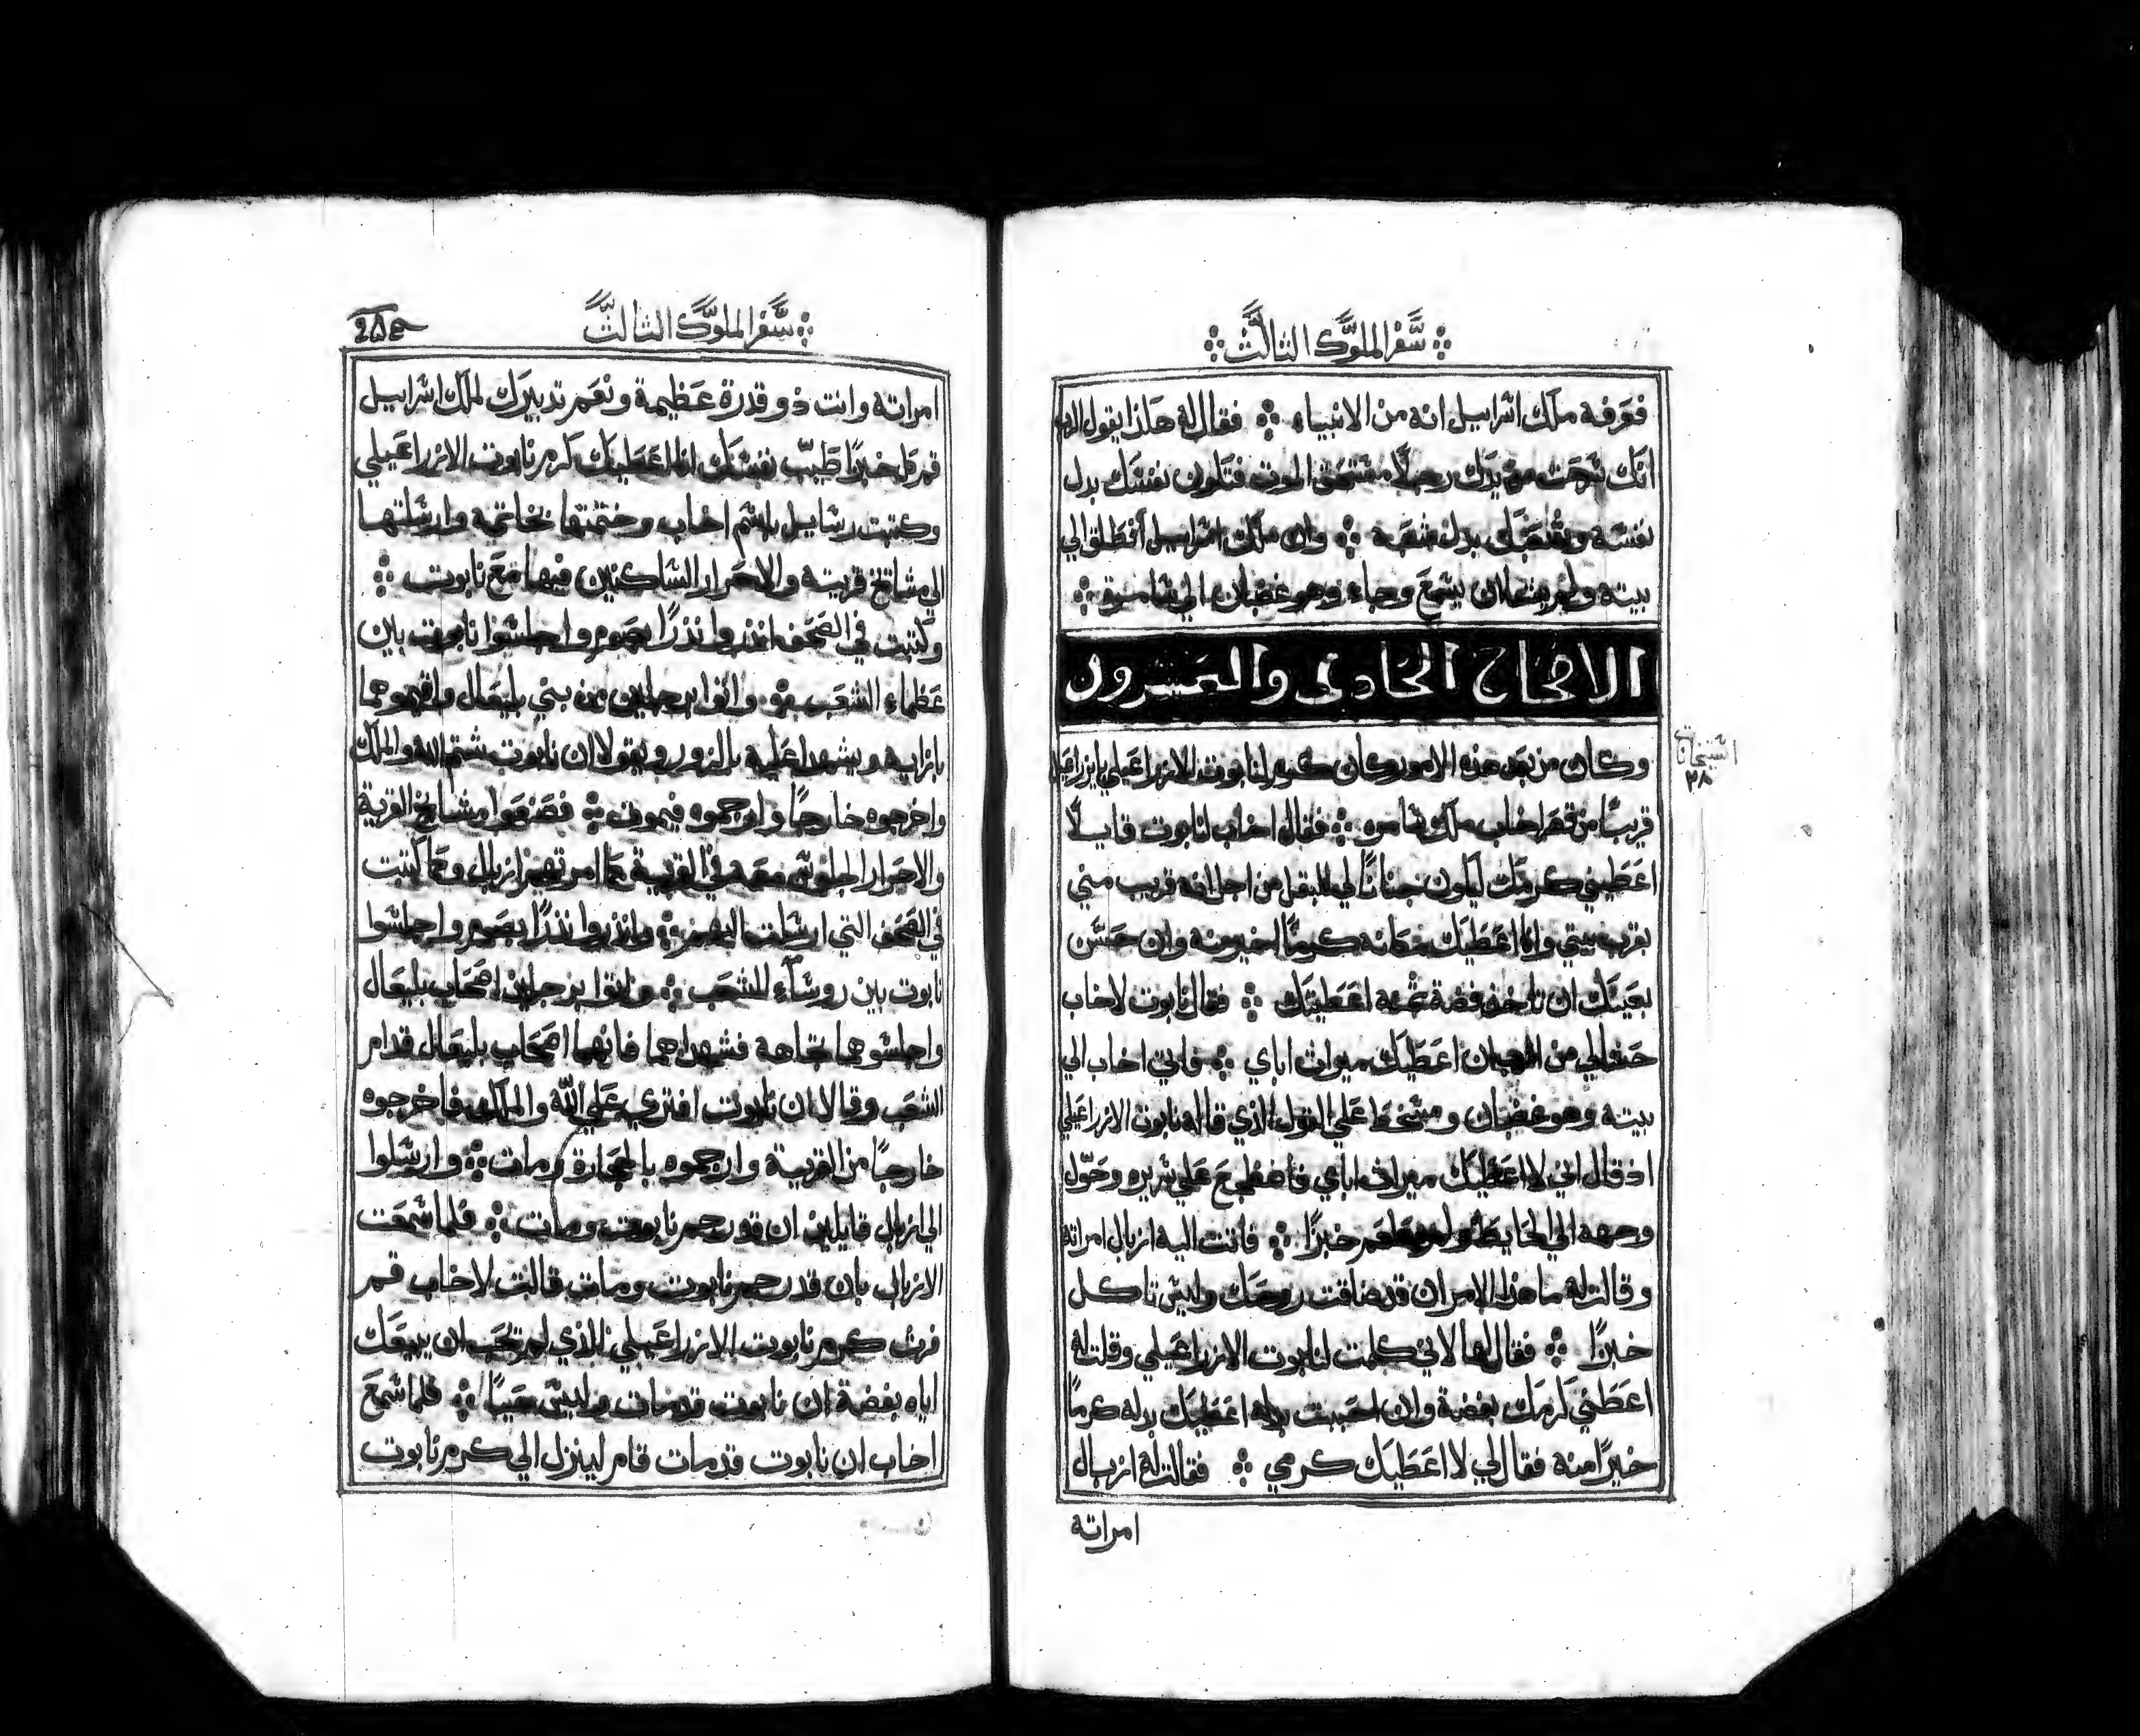 سفر الملوك الثالث
فعرفه ملك اسراييل انه من الانبياء فقال له هكذا يقول الرب
انك سرحت من يدك رجلا مستحق الموت فتكون نفسك بدل
نفسه وشعبك بدل شعبه وان ملك اسراييل انطلق الي
بيته ولم يسمع وجاء وهو غضبان الي شامرة
الاصحاح الحادي والعشرون
وكان من بعد هذه الامور كان كرم لنابوت الازراعيلي بايزراعيل
قريبا من قصر اخاب ملك شامره فقال اخاب لنابوت قايلا
اعطيني كرمك ليكون جنانا لي للبقل من اجل انه قريب مني
بقرب بيتي وانا اعطيك مكانه كرما اخير منه وان حسن
بعينك ان تاخذ فضة ثمنه اعطيتك فقال نابوت لاخاب
حشا لي من ان اعطيك ميراث اباي فاتي اخاب الي
بيته وهو غضبان ومسخط علي القول الذي قاله نابوت الازراعيلي
اذ قال اني لا اعطيك ميراث اباي فاضطجع علي سريره وحول
وجهه الي الحايط ولم يطعم خبزا فاتت اليه ازبال امراته
وقالت له ما هذا الامر ان قد ضاقت روحك وليس تاكل
خبزا فقال لها لاني كلمت لنابوت الازراعيلي وقلت له
اعطني كرمك بفضة وان احببت بدله اعطيك بدله كرما
خيرا منه فقال لي لا اعطيك كرمي فقالت له ازبال
امراته
السنجات
٢٨
سفر الملوك الثالث
امراته وانت ذو قدرة عظيمة ونعم تدبيرك لملك اسراييل
قم كل خبزا طيب نفسك انا اعطيك كرم نابوت الازراعيلي
وكتبت رسايل باسم اخاب وختمتها بخاتمه وارسلتها
الي مشايخ قريته والاحرار الساكنين فيها مع نابوت
وكتبت في الصحف انذروا نذرا بصوم واجلسوا نابوت بين
عظماء الشعب واتوا برجلين من بني بليعال واقيموهما
بازايه ويشهدا عليه بالزور ويقولا ان نابوت شتم الله والملك
واخرجوه خارجا وارجموه فيموت فصنعوا مشايخ القرية
والاحرار الجلوس معه في القرية كما امرتهم ازبال وكما كتبت
في الصحف التي ارسلت اليهم وانذروا نذرا بصوم واجلسوا
نابوت بين روساء الشعب واتوا برجلين اصحاب بليعال
واجلسوهما تجاهه فشهداهما فانهما اصحاب بليعال قدام
الشعب وقالا ان نابوت افتري علي الله والملك فاخرجوه
خارجا من القرية وارجموه بالحجارة ومات وارسلوا
الي ازبال قايلين ان قد رجم نابوت ومات فلما سمعت
الازبال بان قد رجم نابوت ومات قالت لاخاب قم
فرث كرم نابوت الازراعيلي الذي لم تحب ان يبيعك
اياه بفضة ان نابوت قد مات وليس حيا فلما سمع
اخاب ان نابوت قد مات قام لينزل الي كرم نابوت